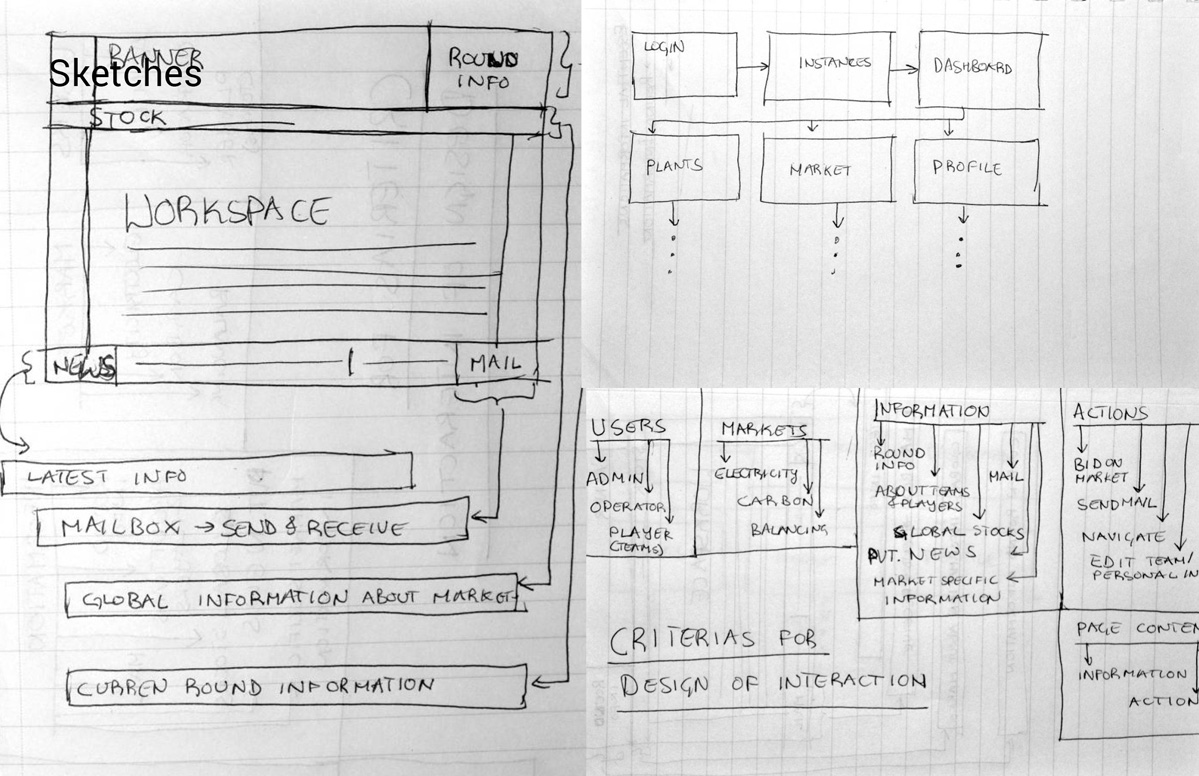 BANNER
Sketches
ROUND
INFO
STOCK
WORKSPACE
NEWS
MAIL
LATEST INFO
MAILBOX → SEND & RECEIVE
GLOBAL INFORMATION ABOUT MARKET
CURREN ROUND INFORMATION
LOGIN
INSTANCES
DASHBOARD
PLANTS
MARKET
PROFILE
USERS
ADMIN
OPERATOR
PLAYER
(TEAMS)
MARKETS
ELECTRICITY
CARBON
BALANCING
INFORMATION
ROUND
INFO
MAIL
ABOUT TEAMS
& PLAYERS
GLOBAL STOCKS
PUT. NEWS
MARKET SPECIFIC
INFORMATION
ACTIONS
BID ON
MARKET
SEND MAIL
NAVIGATE
EDIT TEAM/
PERSONAL IN
PAGE CONTEN
INFORMATION
ACTION
CRITERIAS FOR
DESIGN OF INTERACTION